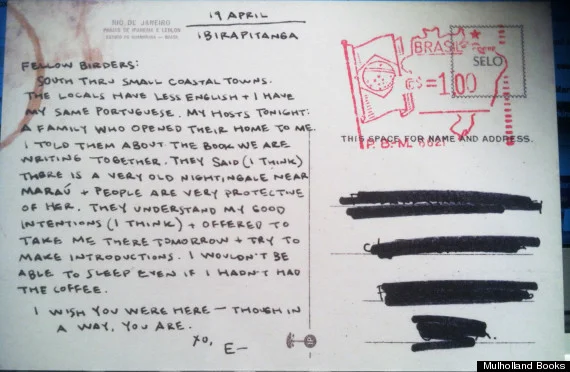 RIO DE JANEIRO
19 APRIL
IBIRAPITANGA
FELLOW BIRDERS:
SOUTH THRU SMALL COASTAL TOWNS.
THE LOCALS HAVE LESS ENGLISH + I HAVE
MY SAME PORTUGUESE. MY HOSTS TONIGHT:
A FAMILY WHO OPENED THEIR HOME TO ME.
I TOLD THEM ABOUT THE BOOK WE ARE
WRITING TOGETHER. THEY SAID (I THINK)
THERE IS A VERY OLD NIGHTINGALE NEAR
MARAÚ + PEOPLE ARE VERY PROTECTIVE
OF HER. THEY UNDERSTAND MY GOOD
INTENTIONS (I THINK) + OFFERED TO
TAKE ME THERE TOMORROW + TRY TO
MAKE INTRODUCTIONS. I WOULDN'T BE
ABLE TO SLEEP EVEN IF I HADN'T HAD
THE COFFEE.
I WISH YOU WERE HERE — THOUGH IN
A WAY, YOU ARE.
XO,
E—
BRASIL
SELO
=1,00
P.B.M. 0021
THIS SPACE FOR NAME AND ADDRESS.
Mulholland Books